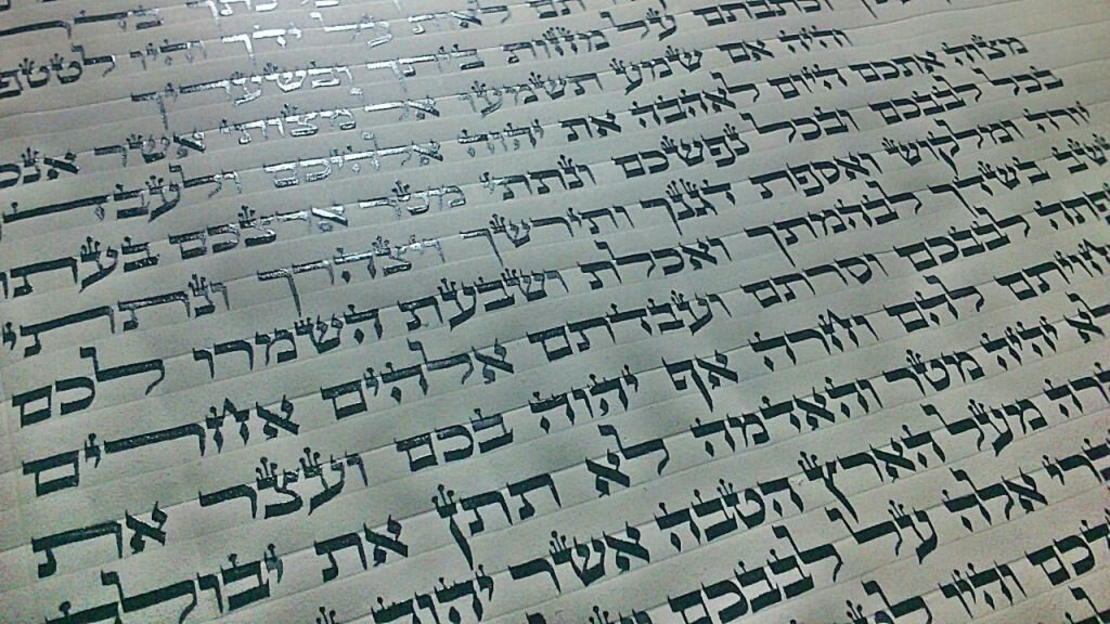 על ידך והיו
וכתבתם על מזזות ביתך ובשעריך
והיה אם שמע תשמעו אל מצותי אשר
מצוה אתכם היום לאהבה את יהוה אלהיכם
בכל לבבכם ובכל נפשכם ונתתי מטר ארצכם בעתו
יורה ומלקוש ואספת דגנך ותירשך ויצהרך ונתתי
בשדך לבהמתך ואכלת ושבעת השמרו לכם
לבבכם וסרתם ועבדתם אלהים אחרים
להם וחרה אף יהוה בכם ועצר את
יהיה מטר והאדמה לא תתן את יבולה
מעל הארץ הטבה אשר יהוה
אלה על לבבכם
והיו